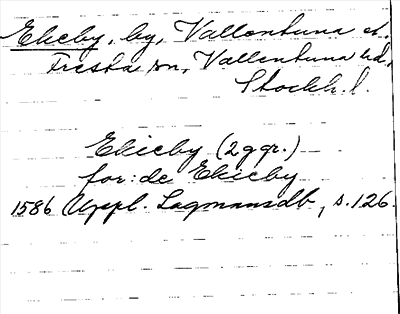 Ekeby, by, Vallentuna ct.
Fresta sn, Vallentuna hd,
Stockh. l.
Ekieby (2 ggr.)
for: de Ekieby
1586 Uppl. Lagmansdb, s. 126.